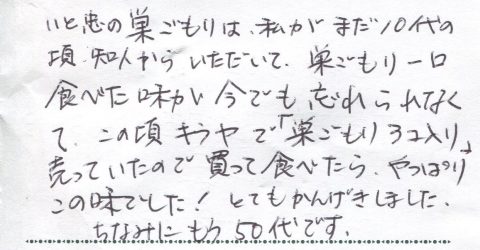 いと忠の巣ごもりは、私がまだ10代の
頃、知人からいただいて、巣ごもり一口
食べた味が今でも忘れられなく
て、この頃キラヤで「巣ごもり3コ入り」
売っていたので買って食べたら、やっぱり
この味でした！とてもかんげきしました。
ちなみにもう50代です。